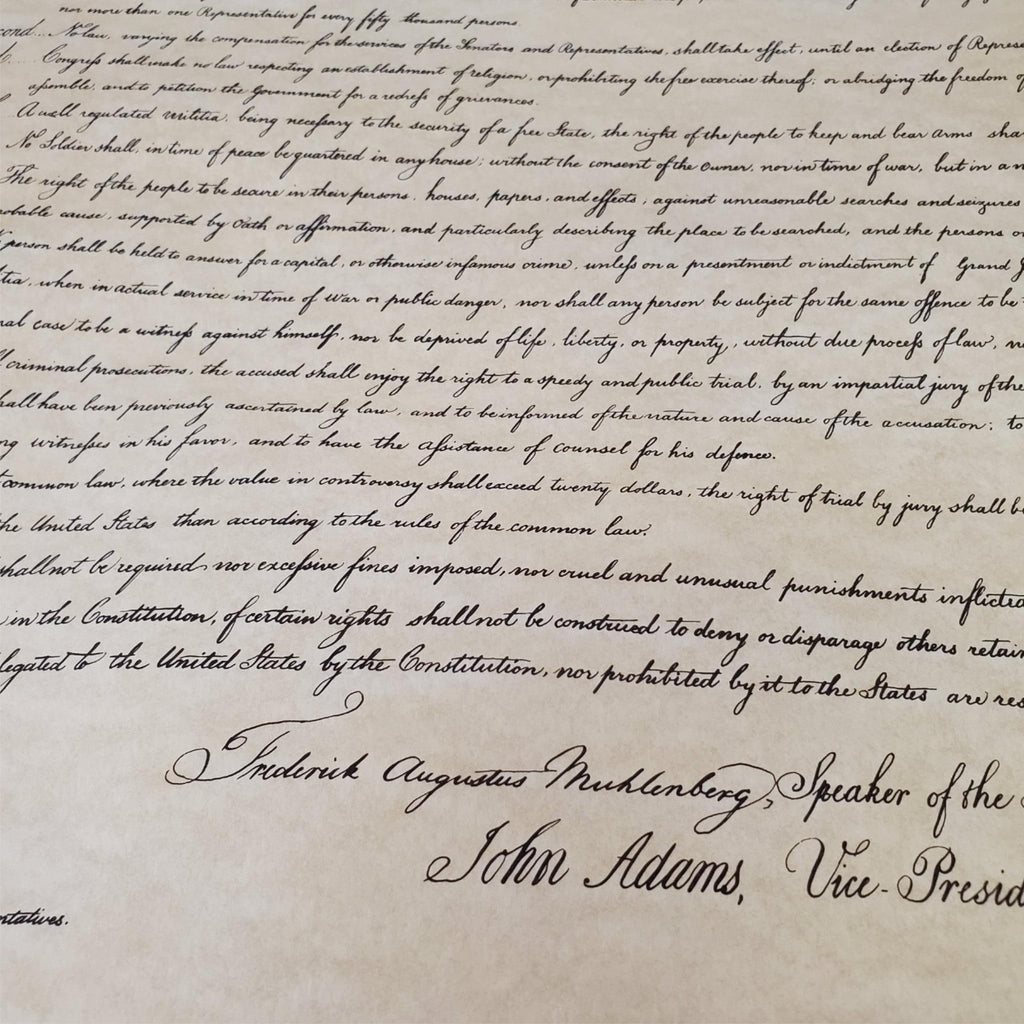 nor more than one Representative for every fifty thousand persons.
cond... No law, varying the compensation for the services of the Senators and Representatives, shall take effect, until an election of Represe
Congreſs shall make no law respecting an establishment of religion, or prohibiting the free exercise thereof; or abridging the freedom of
aſsemble, and to petition the Government for a redreſs of grievances.
A well regulated militia, being neceſsary to the security of a free State, the right of the people to keep and bear arms sha
No Soldier shall, in time of peace be quartered in any house; without the consent of the owner, nor in time of war, but in a m
The right of the people to be secure in their persons, houses, papers, and effects, against unreasonable searches and seizures
robable cause, supported by Oath or affirmation, and particularly describing the place to be searched, and the persons or
person shall be held to answer for a capital, or otherwise infamous crime, unleſs on a presentment or indictment of Grand J
tia, when in actual service in time of War or public danger, nor shall any person be subject for the same offence to be
nal case to be a witneſs against himself, nor be deprived of life, liberty, or property, without due proceſs of law, n
criminal prosecutions, the accused shall enjoy the right to a speedy and public trial, by an impartial jury of the
hall have been previously ascertained by law, and to be informed of the nature and cause of the accusation; to
ng witneſses in his favor, and to have the aſsistance of counsel for his defence.
common law, where the value in controversy shall exceed twenty dollars, the right of trial by jury shall b
the United States than according to the rules of the common law.
shall not be required nor exceſsive fines imposed, nor cruel and unusual punishments inflicted
in the Constitution, of certain rights shall not be construed to deny or disparage others retain
legated to the United States by the Constitution, nor prohibited by it to the States are res
Frederick Augustus Muhlenberg, Speaker of the
John Adams, Vice-Presid
ntatives.